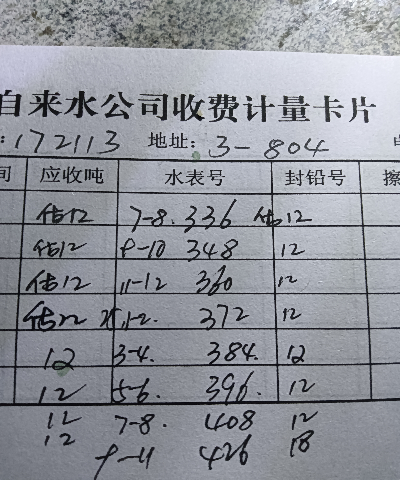 自来水公司收费计量卡片
:172113 地址: 3-804
间 应收吨 水表号 封铅号 擦
估12 7-8. 336 估12
估12 9-10 348 12
估12 11-12 360 12
估12 1-2. 372 12
12 3-4. 384. 12
12 5-6. 396. 12
12 7-8. 408 12
12 9-11 426 18